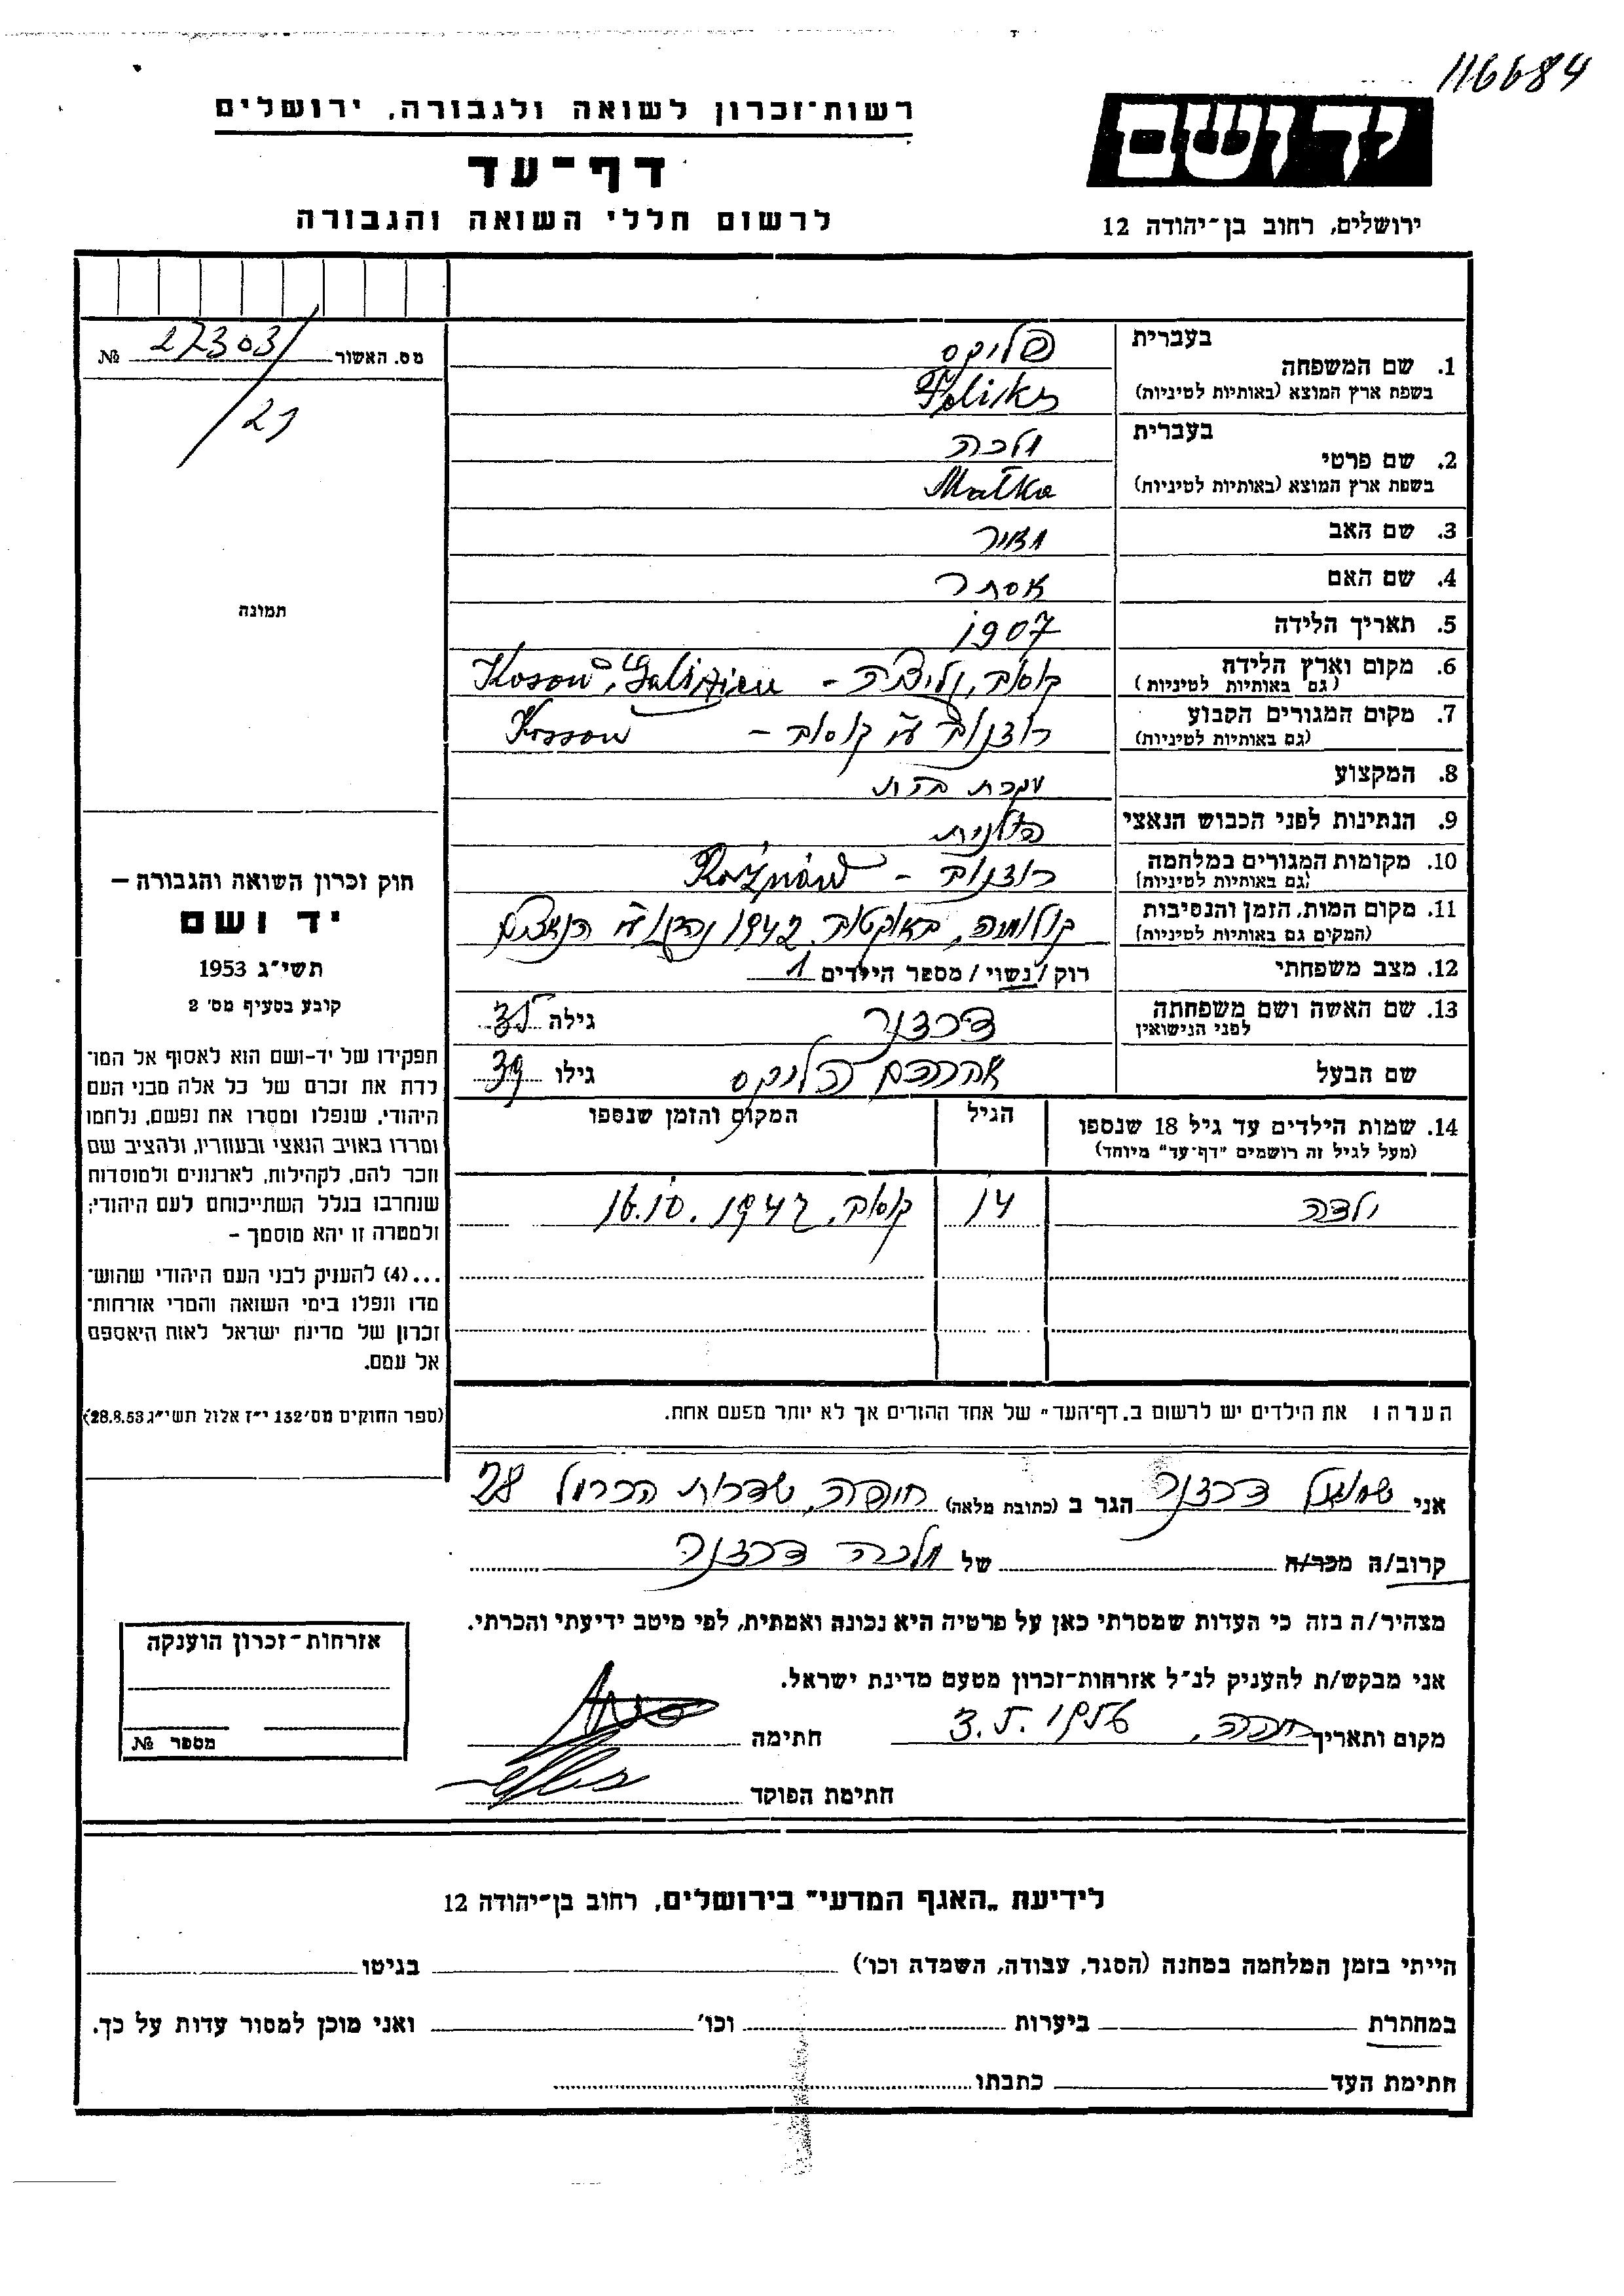 116684
רשות־זכרון לשואה ולגבורה, ירושלים
יד ושם
דף־עד
לרשום חללי השואה והגבורה
ירושלים, רחוב בן־יהודה 12
מס. האשור 27303 №
21
בעברית
1. שם המשפחה
בשפת ארץ המוצא (באותיות לטיניות)
פוליקס
בעברית
2. שם פרטי
בשפת ארץ המוצא (באותיות לטיניות)
מלכה
Malka
3. שם האב
4. שם האם אסתר
5. תאריך הלידה 1907
6. מקום וארץ הלידה
(גם באותיות לטיניות)
קוסוב, גליציה - Kosow, Galizien
7. מקום המגורים הקבוע
(גם באותיות לטיניות)
רוז'נוב ע"י קוסוב - Kossow
8. המקצוע עקרת בית
9. הנתינות לפני הכבוש הנאצי פולנית
10. מקומות המגורים במלחמה
(גם באותיות לטיניות)
רוז'נוב - Rożnów
11. מקום המות, הזמן והנסיבות
(המקום גם באותיות לטיניות)
קולומיה, באוקטוב. 1942 נהרגו ע"י הנאצים
12. מצב משפחתי רוק / נשוי / מספר הילדים 1
13. שם האשה ושם משפחתה
לפני הנישואין
גילה 35
שם הבעל אברהם פוליקס גילו 39
14. שמות הילדים עד גיל 18 שנספו
(מעל לגיל זה רושמים "דף־עד" מיוחד)
הגיל
המקום והזמן שנספו
ילדה 14 קוסוב, 16.10.1942
הערה: את הילדים יש לרשום ב„דף־העד" של אחד ההורים אך לא יותר מפעם אחת.
תמונה
חוק זכרון השואה והגבורה –
יד ושם
תשי"ג 1953
קובע בסעיף מס' 2
תפקידו של יד-ושם הוא לאסוף אל המו־
לדת את זכרם של כל אלה מבני העם
היהודי, שנפלו ומסרו את נפשם, נלחמו
ומרדו באויב הנאצי ובעוזריו, ולהציב שם
וזכר להם, לקהילות, לארגונים ולמוסדות
שנחרבו בגלל השתייכותם לעם היהודי;
ולמטרה זו יהא מוסמך –
...(4) להעניק לבני העם היהודי שהוש־
מדו ונפלו בימי השואה והמרי אזרחות־
זכרון של מדינת ישראל לאות היאספם
אל עמם.
(ספר החוקים מס' 132 י"ז אלול תשי"ג 28.8.53)
אני שמואל דרזנר הגר ב (כתובת מלאה) חיפה, שדרות הכרמל 28
קרוב/ה מכר/ה של מלכה דרזנר
מצהיר/ה בזה כי העדות שמסרתי כאן על פרטיה היא נכונה ואמתית, לפי מיטב ידיעתי והכרתי.
אני מבקש/ת להעניק לנ"ל אזרחות-זכרון מטעם מדינת ישראל.
מקום ותאריך חיפה, חתימה
חתימת הפוקד
אזרחות־זכרון הוענקה
מספר №
לידיעת „האגף המדעי" בירושלים, רחוב בן־יהודה 12
הייתי בזמן המלחמה במחנה (הסגר, עבודה, השמדה וכו') בגיטו
במחתרת ביערות וכו' ואני מוכן למסור עדות על כך.
חתימת העד כתבתו